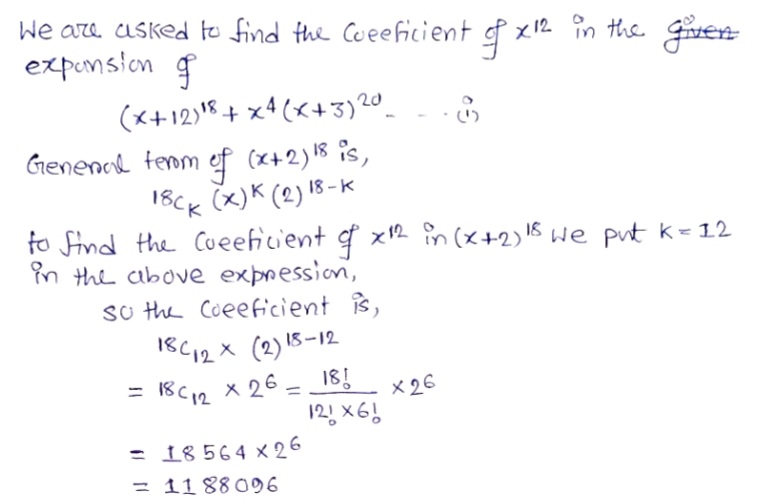 We are asked to find the Coeeficient of x^12 in the given
expansion of
(x+12)^18 + x^4 (x+3)^20 - - - - (i)
General term of (x+2)^18 is,
18C_K (x)^K (2)^18-K
to find the Coeeficient of x^12 in (x+2)^18 we put K = 12
in the above expression,
so the Coeeficient is,
18C_12 × (2)^18-12
= 18C_12 × 2^6 = 18! / 12! × 6! × 2^6
= 18564 × 2^6
= 1188096